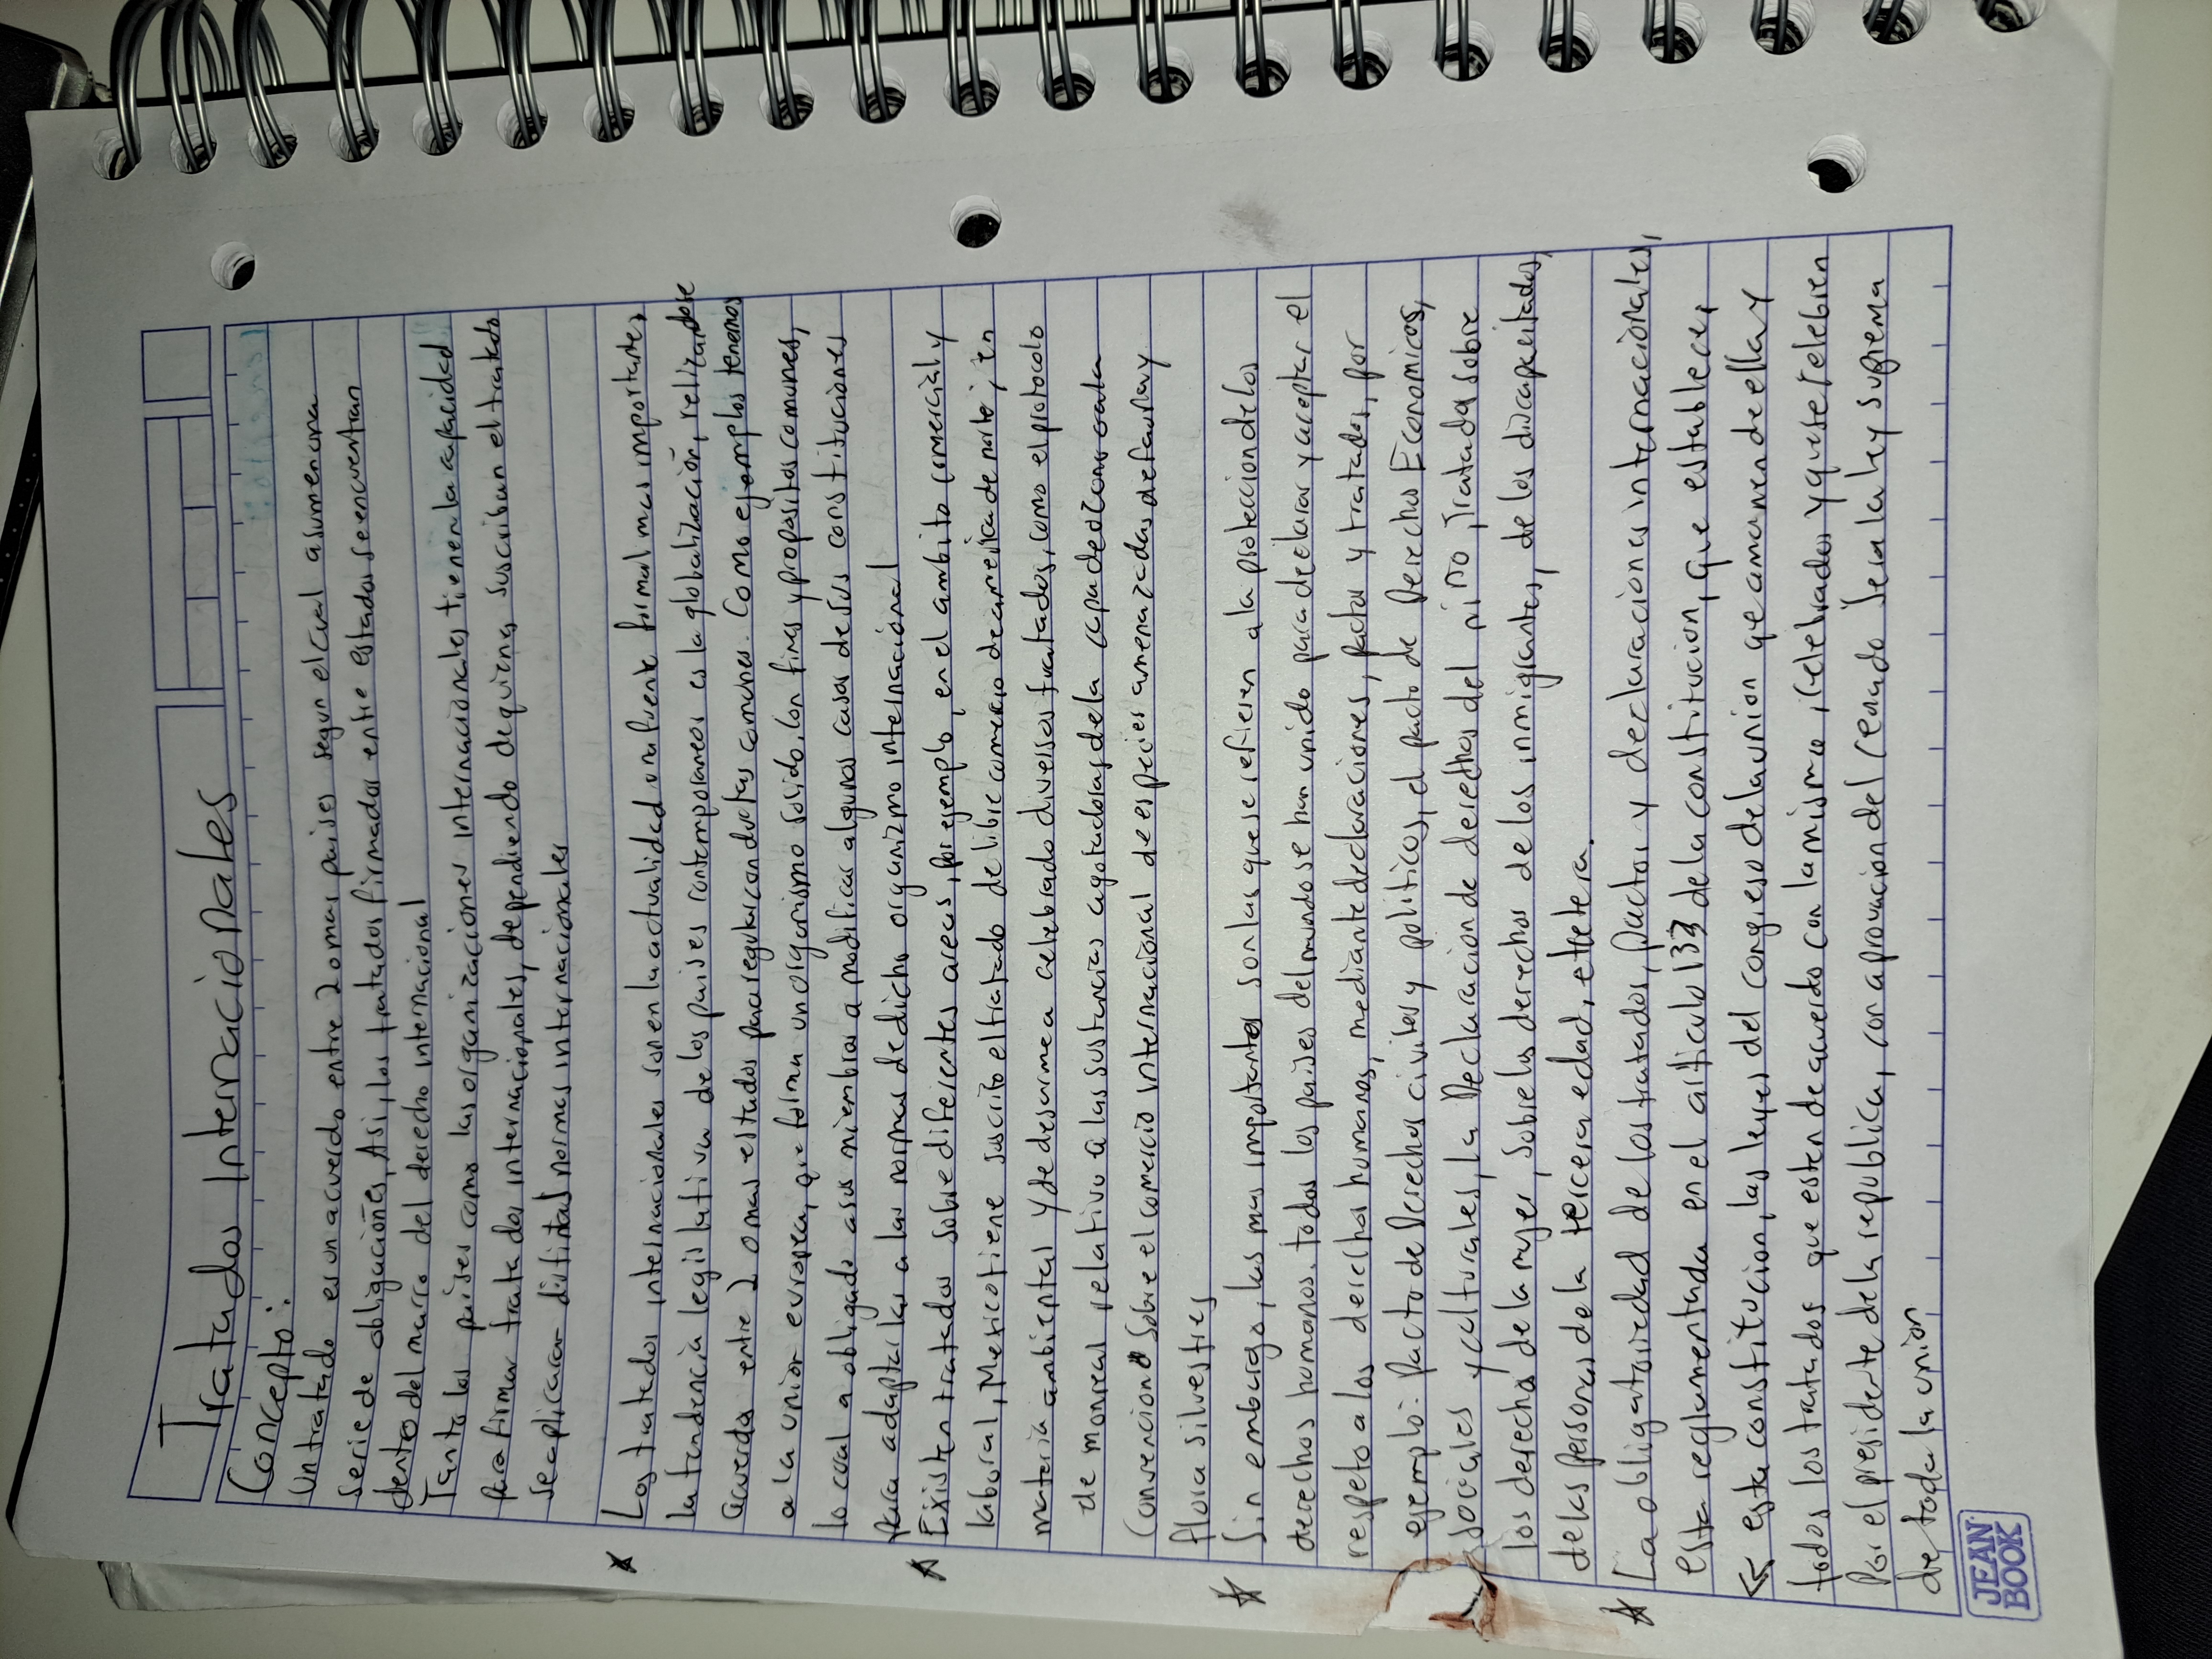 Tratados Internacionales
Concepto:
Un tratado es un acuerdo entre 2 o mas paises segun el cual asumen una
serie de obligaciones, Asi, los tratados firmados entre estados se encuentran
dentro del marco del derecho internacional
Tanto los paises como las organizaciones internacionales tienen la capacidad
para firmar tratados internacionales, dependiendo de quienes suscriban el tratado
se aplicaran distintas normas internacionales
Los tratados internacionales son en la actualidad una fuente formal mas importante,
la tendencia legislativa de los paises contemporaneos es la globalización, relizandose
acuerdos entre 2 o mas estados para regular conductas comunes. Como ejemplos tenemos
a la union europea, que forma un organismo solido, con fines y propositos comunes,
lo cual a obligado a sus miembros a modificar algunos casos de sus constituciones
para adaptarlas a las normas de dicho organizmo internacional
Existen tratados sobre diferentes areas, por ejemplo, en el ambito comercial y
laboral, Mexico tiene suscrito el tratado de libre comercio de america de norte, en
materia ambiental y de desarme a celebrado diversos tratados, como el protocolo
de monreal relativo a las sustancias agotadoras de la capa de o
Convencion sobre el comercio internacional de especies amenazadas de fauna y
flora silvestres
Sin embargo, las mas importantes son las que se refieren a la proteccion de los
derechos humanos. todos los paises del mundo se han unido para declarar y aceptar el
respeto a los derechos humanos, mediante declaraciones, pactos y tratados, por
ejemplo: pacto de Derechos civiles y politicos, el pacto de Derechos Economicos,
sociales y culturales, la Declaracion de derechos del niño, Tratados sobre
los derechos de la mujer, sobre los derechos de los inmigrantes, de los discapacitados,
de las personas de la tercera edad, etcetera.
La obligatoriedad de los tratados, pactos y declaraciones internacionales,
esta reglamentada en el articulo 133 de la constitucion, que establece,
<< esta constitucion, las leyes del congreso de la union que amanen de ella y
todos los tratados que esten de acuerdo con la misma, celebrados y que se celebren
Por el presidente de la republica, con aprovacion del senado sera la ley suprema
de toda la union
JEAN
BOOK